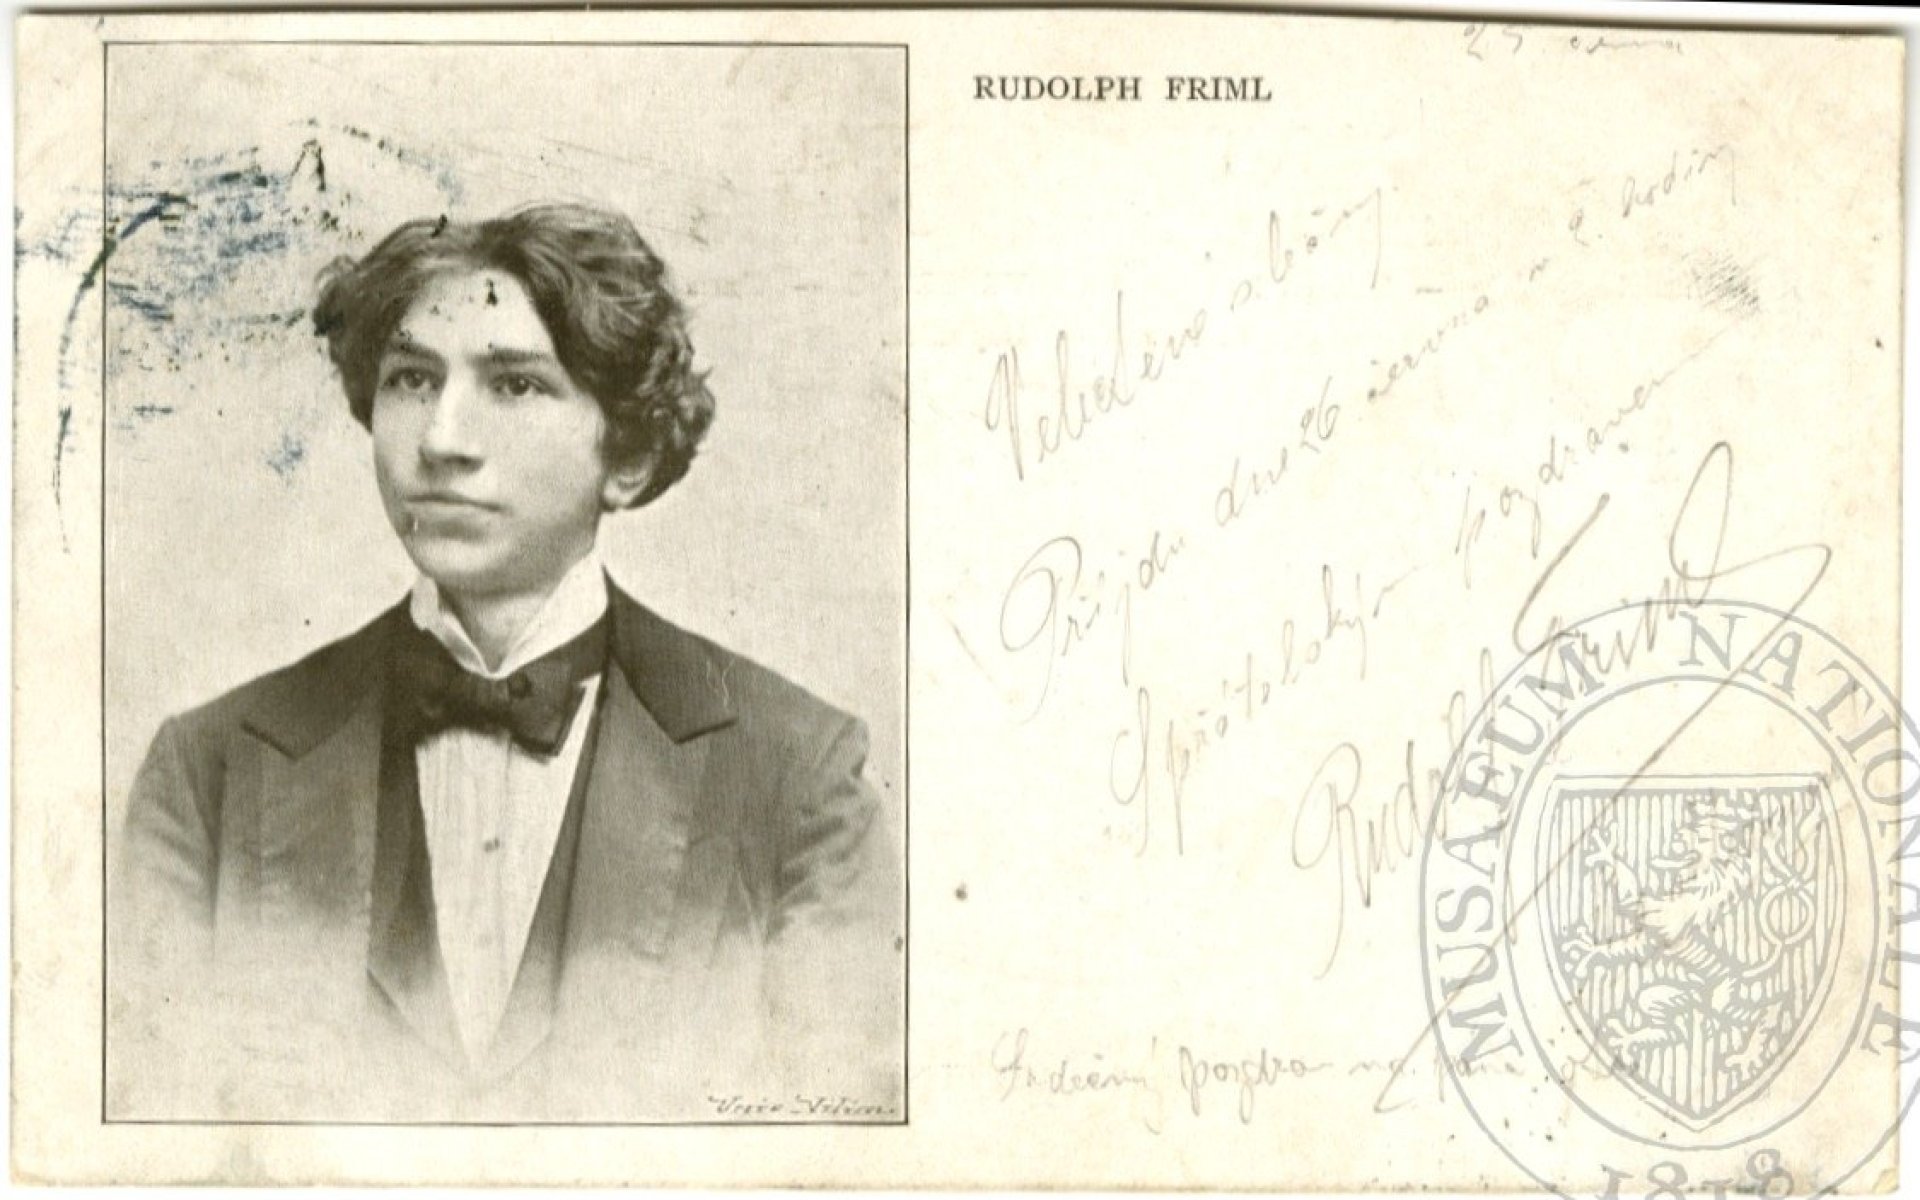 RUDOLPH FRIML
Velectěná slečno
Přijdu dne 26 června v 2 hodiny
S přátelským pozdravem
Rudolf Friml
Srdečný pozdrav na pana
MUSAEUM NATIONALE
1818